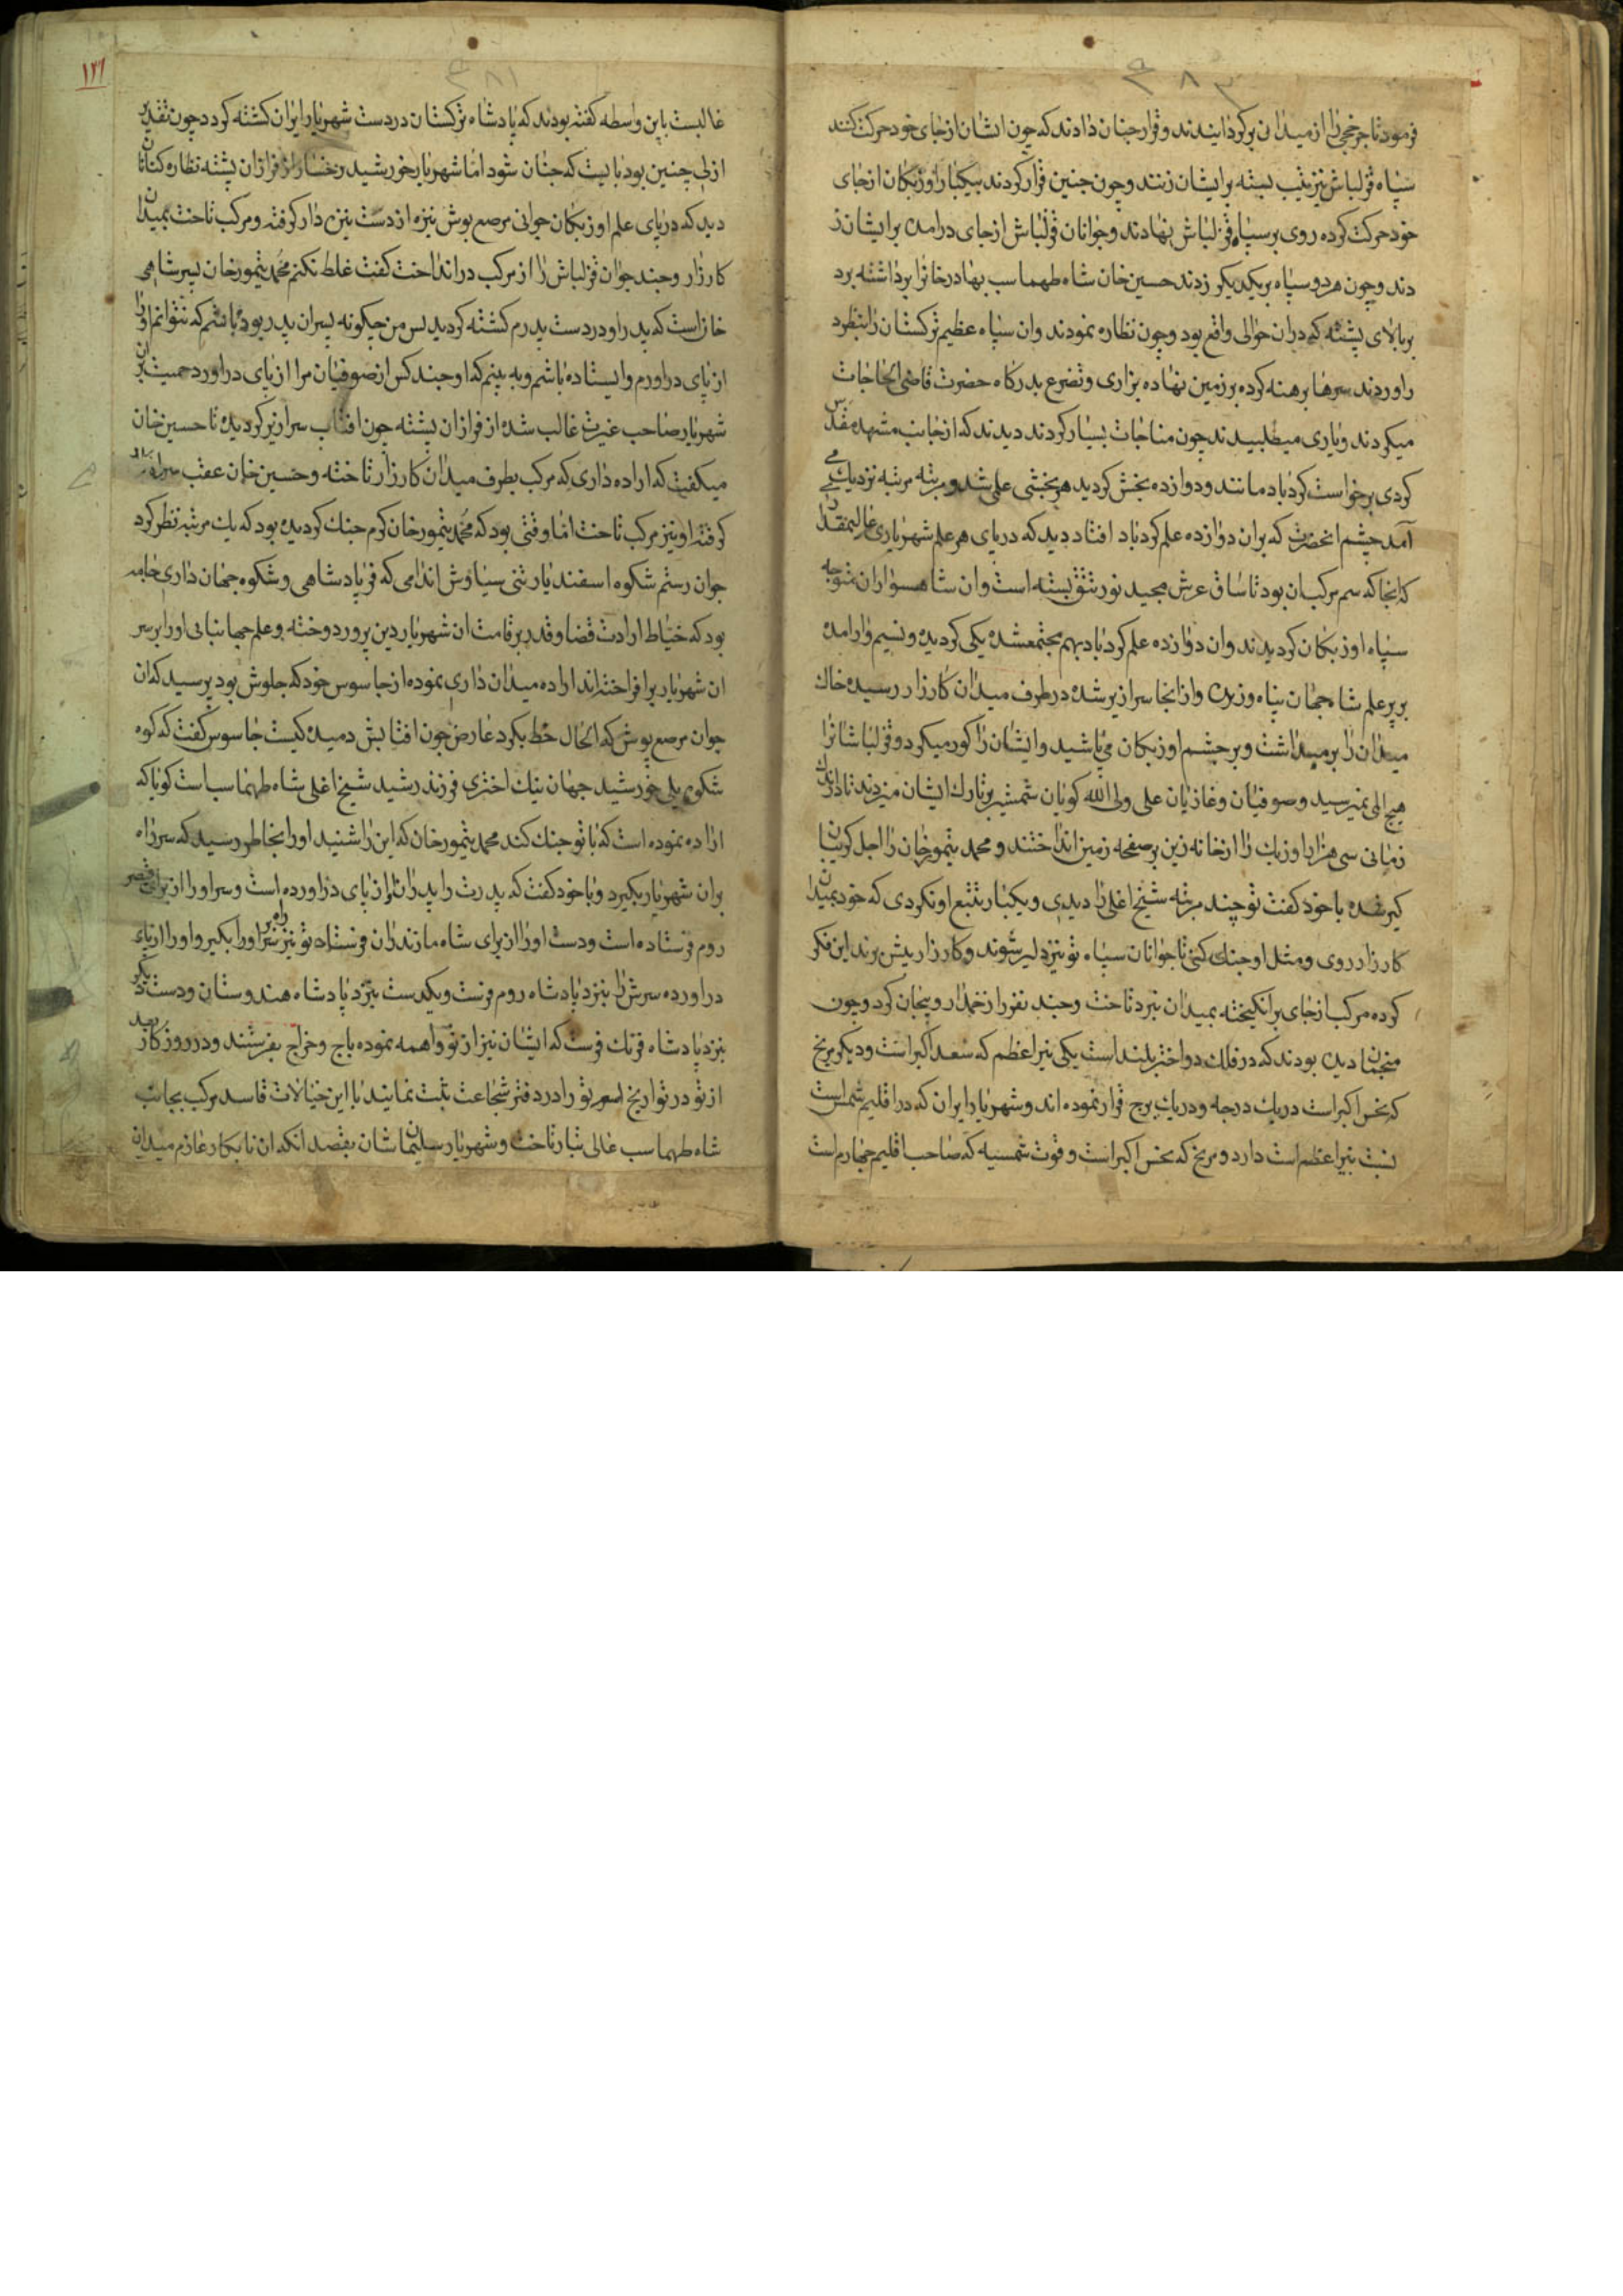 ۳۸۲
فرمود تا چرخجی را از میدان برگردانیدند و قرار چنان دادند که چون ایشان از جای خود حرکت کنند
سپاه قزلباش نیز تیپ بسته برایشان زنند و چون چنین قرار کردند بیکبار اوزبکان از جای
خود حرکت کرده روی بر سپاه قزلباش نهادند و جوانان قزلباش از جای درآمده برایشان ز
دند و چون هر دو سپاه بریکدیکر زدند حسین خان شاه طهماسب بهادرخانرا برداشته برد
بر بالای پشته که دران حوالی واقع بود و چون نظاره نمودند وان سپاه عظیم ترکستان را بنظر د
راوردند سرها برهنه کرده بر زمین نهاده بزاری و تضرع بدرکاه حضرت قاضی الحاجات
میکردند و یاری میطلبیدند چون مناجات بسیار کردند دیدند که از جانب مشهد مقدس
کردی برخواست کردباد مانند و دوازده بخش کردید هر بخشی علمی شد و مرتبه مرتبه نزدیک می
آمد چشم انحضرت که بران دوازده علم کردباد افتاد دید که در پای هر علم شهریاری عالیمقدار
که انجا که سم مرکب ان بود تا ساق عرش مجید نور تتق بسته است وان شاهسواران متوجه
سپاه اوزبکان کردیدند وان دوازده علم کردباد بهم مجتمع شده یکی کردیده و نسیم وار امده
بر پر علم شاه جهان پناه وزیده و از انجا سرازیر شده در طرف میدان کارزار رسیده خاک
میدان را برمیداشت و بر چشم اوزبکان می پاشید وایشان را کور میکرد و قزلباشانرا
هیچ المی نمیرسید و صوفیان و غازیان علی ولی الله کویان شمشیر بر تارک ایشان میزدند تا در اندک
زمانی سی هزار اوزبک را از خانه زین بر صفحه زمین انداختند و محمد تیمورخان را اجل کریبان
کیر شده با خود کفت تو چند مرتبه شیخ اغلی را دیدی و یکبار تتبع او نکردی که خود بمیدان
کارزار روی و مثل او جنک کنی تا جوانان سپاه تو نیز دلیر شوند و کارزار پیش برند این فکر
کرده مرکب از جای برانکیخته بمیدان نبرد تاخت و چند نفر را زخمدار و بیجان کرد و چون
منجمان دیده بودند که در فلک دو اختر بلند است یکی نیر اعظم که سعد اکبر است و دیکر مریخ
که نحس اکبر است در یک درجه و در یک برج قرار نموده اند و شهریار ایران که در اقلیم شمس است
نسبت بنیر اعظم است دارد و مریخ که نحس اکبر است و قوت شمسیه که صاحب اقلیم چهارم است
۳۸۱
۱۲۱
غالبست باین واسطه کفته بودند که پادشاه ترکستان در دست شهریار ایران کشته کردد چون تقدیر
ازلی چنین بود بایست که چنان شود اما شهریار خورشید رخسار از فراز ان پشته نظاره کنان
دید که در پای علم اوزبکان جوانی مرصع پوش نیزه از دست نیزه دار کرفته و مرکب تاخت بمیدان
کارزار و چند جوان قزلباش را از مرکب در انداخت کفت غلط نکنم محمد تیمورخان پسر شاهی
خان است که پدر او در دست پدرم کشته کردید پس من چکونه پسر ان پدر بوده باشم که نتوانم او را
از پای دراورم و ایستاده باشم و به بینم که او چند کس از صوفیان مرا از پای دراورد حمیت بران
شهریار صاحب غیرت غالب شده از فراز ان پشته چون افتاب سرازیر کردیده تا حسین خان
میکفت که اراده داری که مرکب بطرف میدان کارزار تاخته و حسین خان عقب سر
کرفته او نیز مرکب تاخت اما وقتی بود که محمد تیمورخان کرم جنک کردیده بود که یک مرتبه نظر کرد
جوان رستم شکوه اسفندیار تنی سیاوش اندامی که فر پادشاهی و شکوه جهان داری جامه
بود که خیاط ارادت قضا و قدر بر قامت ان شهریار دین پرور دوخته و علم جهانبانی او را بر سر
ان شهریار برافراخته اند اراده میدان داری نموده از جاسوس خود که جلوش بود پرسید که ان
جوان مرصع پوش که الحال خط بکرد عارض چون افتابش دمیده کیست جاسوس کفت که کوه
شکوی بلی خورشید جهان نیک اختری فرزند رشید شیخ اغلی شاه طهماسب است کویا که
اراده نموده است که با تو جنک کند محمد تیمورخان که این را شنید او را بخاطر رسید که سر راه
بران شهریار بکیرد و با خود کفت که پدرت را پدر ان از پای دراورده است و سر او را از برای قیصر
روم فرستاده است و دست او را از برای شاه مازندران فرستاد تو نیز سر راه او را بکیر و او را از پای
دراورده سرش را بنزد پادشاه روم فرست و یکدست بنزد پادشاه هندوستان و دست دیکر
بنزد پادشاه فرنک فرست که ایشان نیز از تو واهمه نموده باج و خراج بفرستند و در روزکار بعد
از تو در تواریخ اسم تو را در دفتر شجاعت ثبت نمایند با این خیالات فاسد مرکب بجانب
شاه طهماسب عالی تبار تاخت و شهریار سلیمان شان بقصد انکه ان نابکار عازم میدان